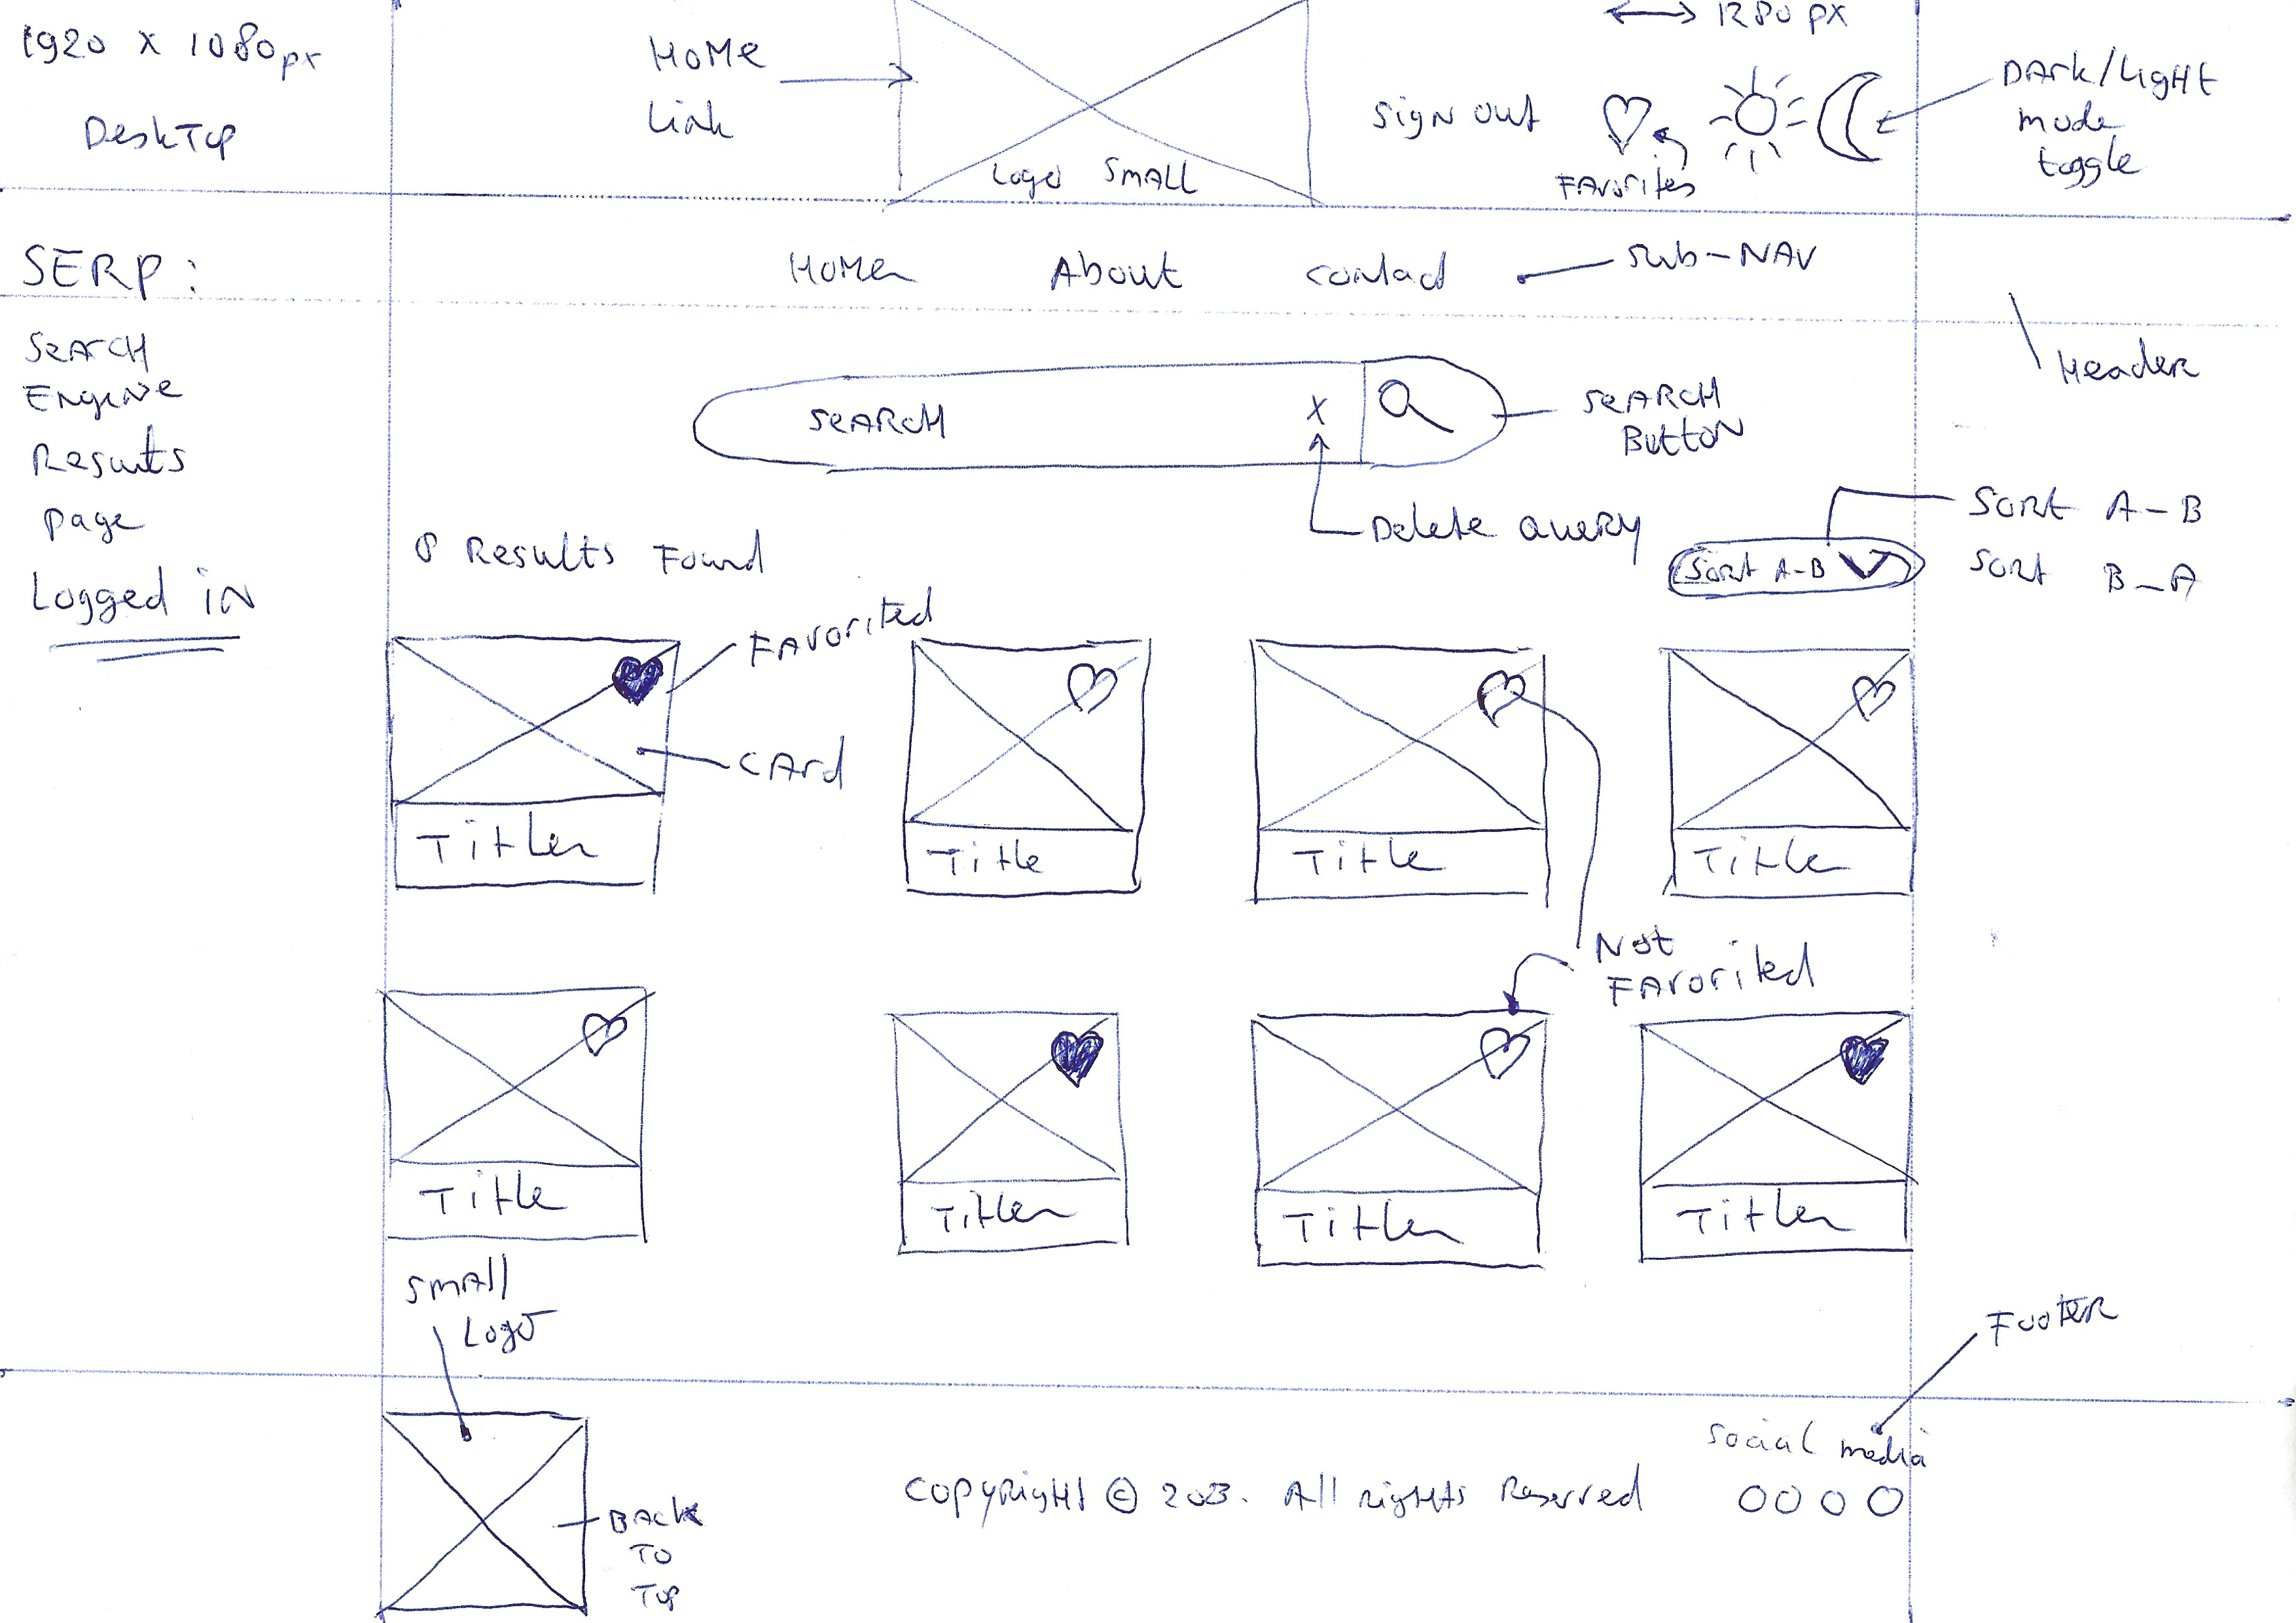 1920 x 1080px
DeskTop
Home
Link
Logo Small
Sign out
Favorites
1280 px
Dark/Light
mode
toggle
SERP:
Search
Engine
Results
Page
Logged in
Home About Contact
Sub-Nav
Header
Search
X
Search
Button
Delete Query
8 Results Found
Sort A-B
Sort A-B
Sort B-A
Favorited
Card
Title
Title
Title
Title
Not
Favorited
Title
Title
Title
Title
Small
Logo
Footer
Back
To
Top
Copyright © 2023. All rights Reserved
Social media